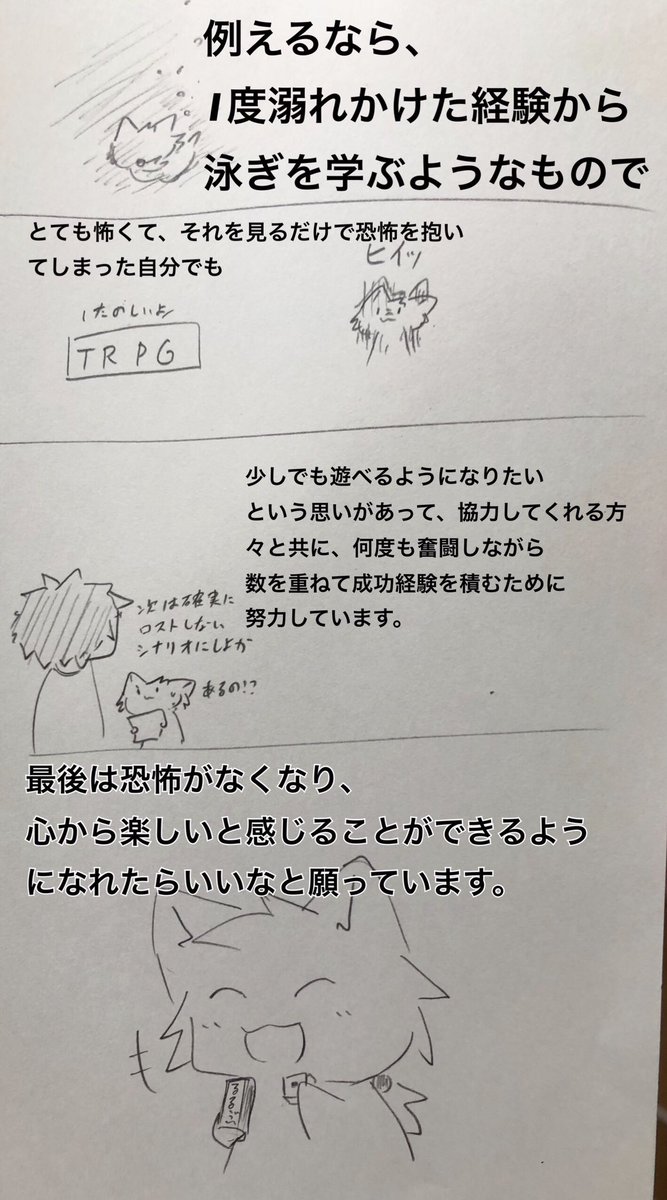 例えるなら、
1度溺れかけた経験から
泳ぎを学ぶようなもので
とても怖くて、それを見るだけで恐怖を抱い
てしまった自分でも
ヒイッ
たのしいよ
TRPG
少しでも遊べるようになりたい
という思いがあって、協力してくれる方
々と共に、何度も奮闘しながら
数を重ねて成功経験を積むために
努力しています。
次は確実に
ロストしない
シナリオにしよか
あるの!?
最後は恐怖がなくなり、
心から楽しいと感じることができるよう
になれたらいいなと願っています。